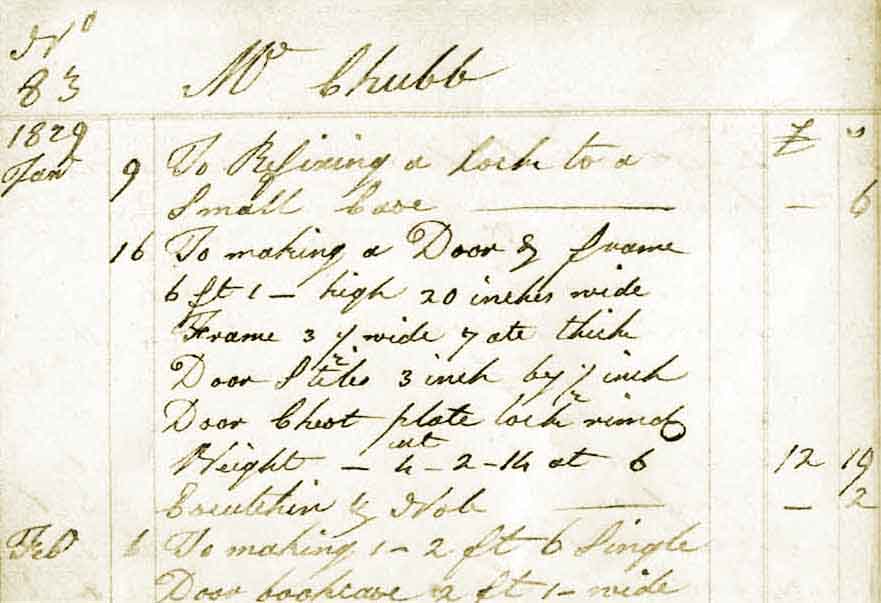 No
83 Mr Chubb
1829 £ s
Jany 9 To Refixing a Lock to a
Small Case — 6
16 To making a Door & frame
6 ft 1 – high 20 inches wide
Frame 3 ½ wide 7 ate thick
Door Stiles 3 inch by ½ inch
Door Chest plate lock rimd
Weight – 4 cwt – 2 – 14 at 6 12 19
Escutchin & Nob — 2
Feb 6 To making 1 – 2 ft 6 Single
Door bookcase 2 ft 1 – wide